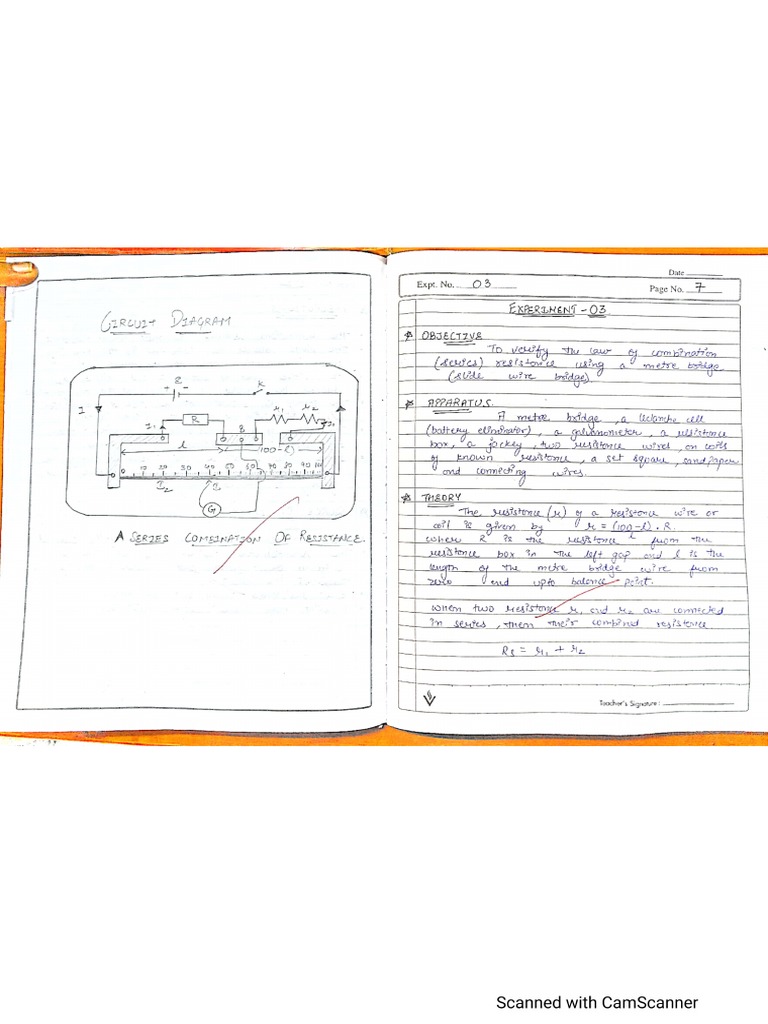 CIRCUIT DIAGRAM
E
K
I
I₁
R
B
r₁ r₂
l
(100-l)
10 20 30 40 50 60 70 80 90 100
I₂
G
A SERIES COMBINATION OF RESISTANCE.
Date
Expt. No. 03
Page No. 7
EXPERIMENT - 03
OBJECTIVE
To verify the law of combination
(series) resistance using a metre bridge
(slide wire bridge).
APPARATUS.
A metre bridge, a leclanche cell
(battery eliminator), a galvanometer, a resistance
box, a jockey, two resistance wires, or coils
of known resistance, a set square, sandpaper
and connecting wires.
THEORY
The resistance (r) of a resistance wire or
coil is given by r = (100-l) . R.
l
where R is the resistance from the
resistance box in the left gap and l is the
length of the metre bridge wire from
zero end upto balance point.
When two resistance r₁ and r₂ are connected
in series, then their combined resistance
Rs = r₁ + r₂
Teacher's Signature :
Scanned with CamScanner